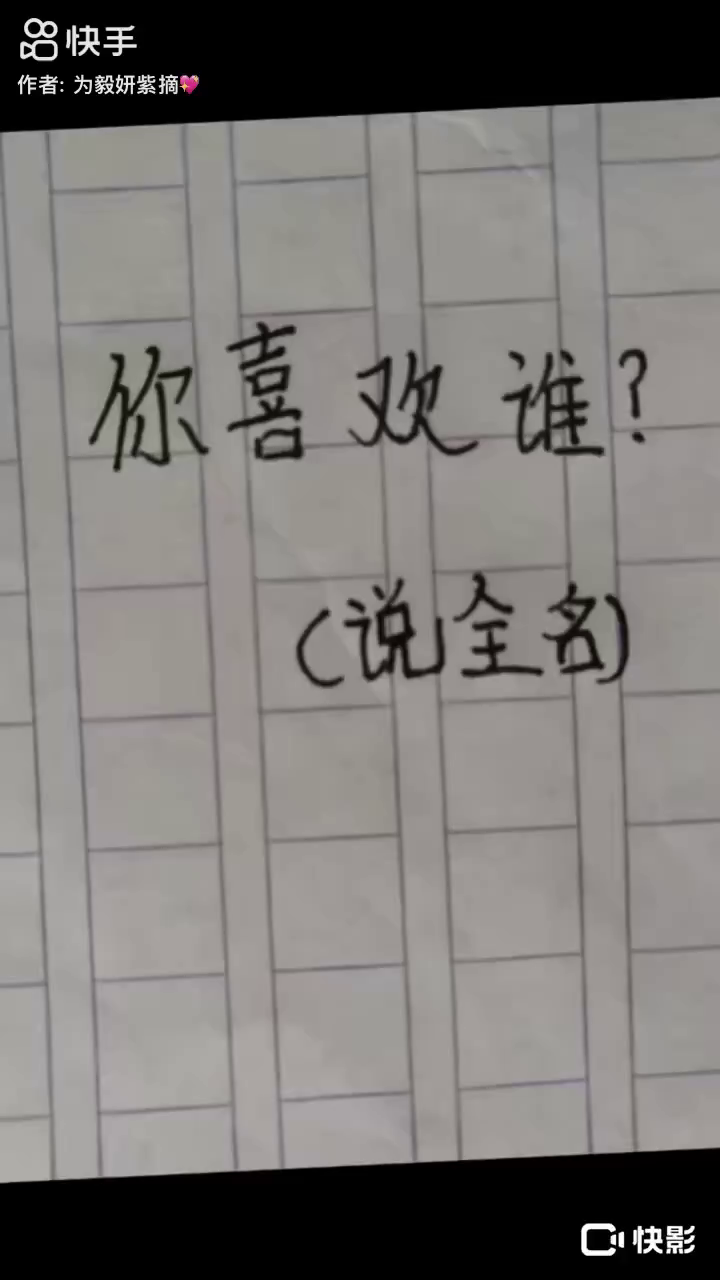 快手
作者: 为毅妍紫摘💖
你喜欢谁?
(说全名)
快影